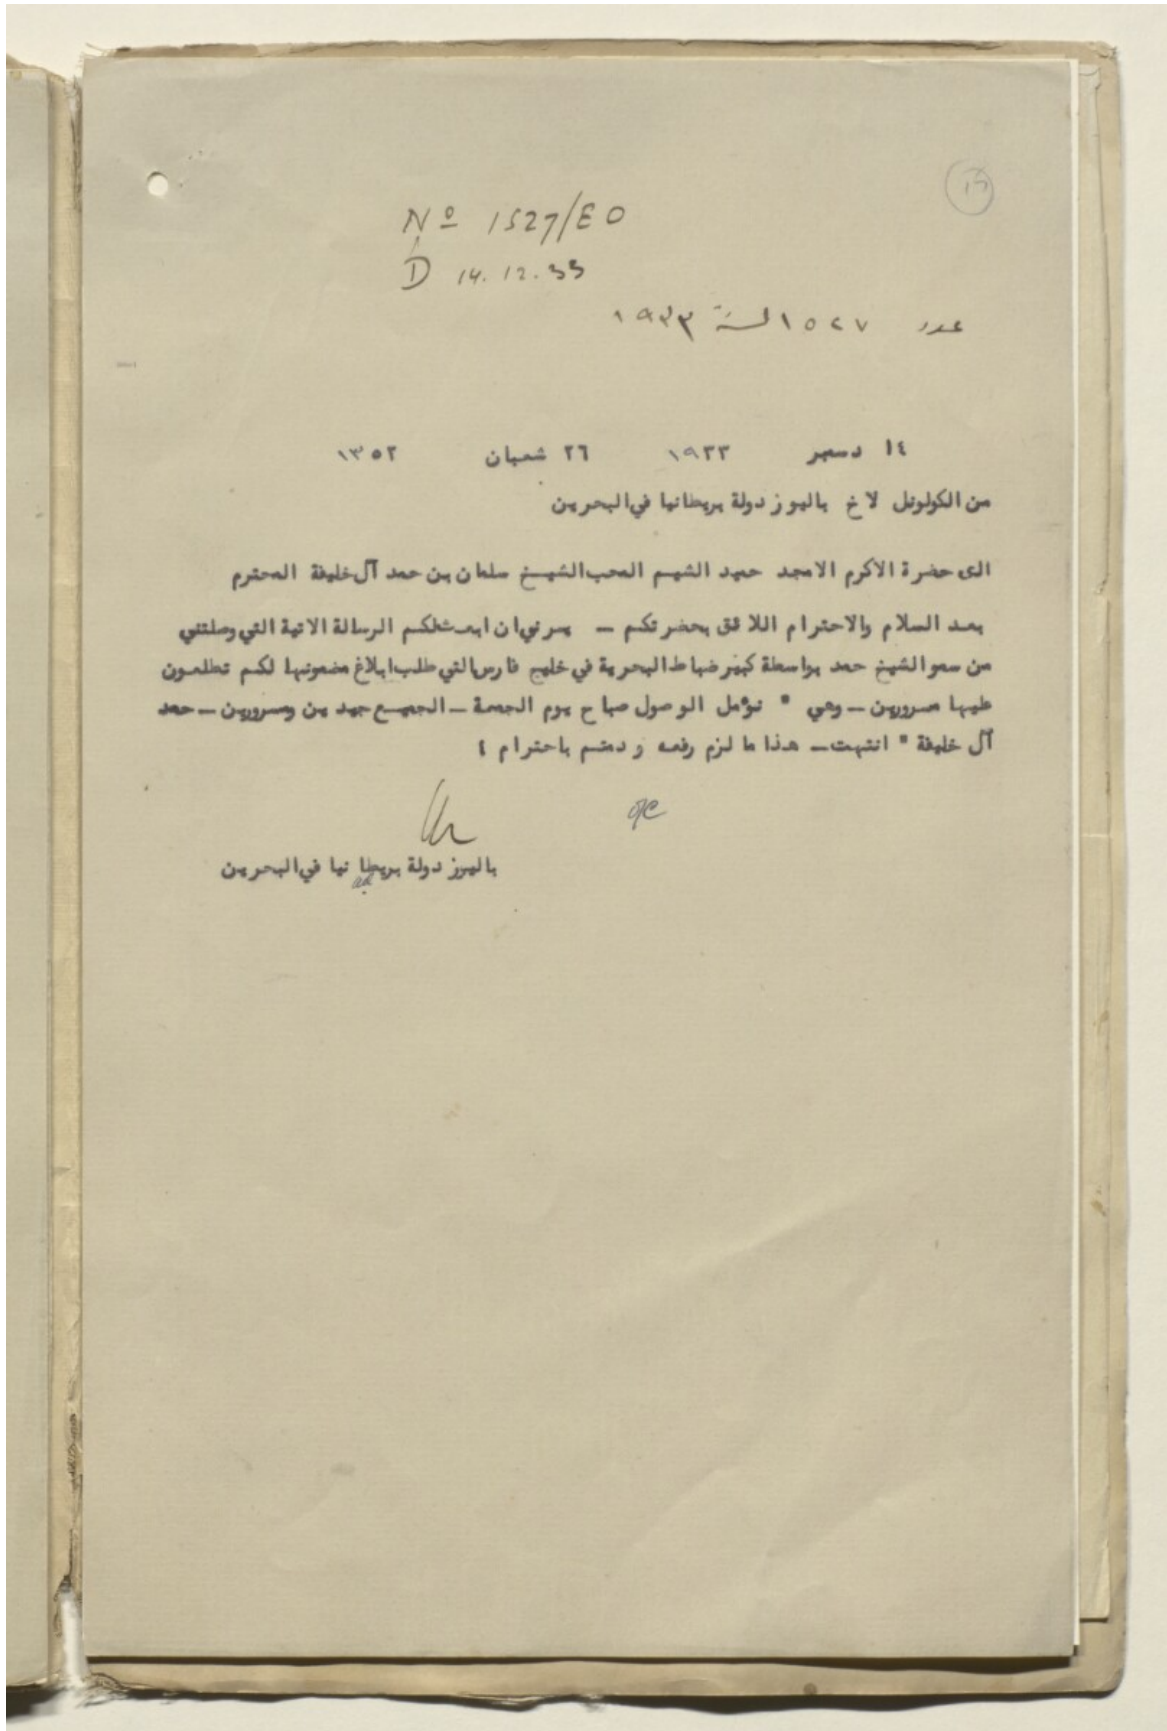 ١٦
Nº 1527/E0
D 14.12.33
عدد ١٥٢٧ لسنة ١٩٣٣
١٤ دسمبر ١٩٣٣ ٢٦ شعبان ١٣٥٢
من الكولونل لاخ باليوز دولة بريطانيا في البحرين
الى حضرة الاكرم الامجد حميد الشيم المحب الشيخ سلمان بن حمد آل خليفة المحترم
بعد السلام والاحترام اللائق بحضرتكم – يسرني ان ابعث لكم الرسالة الاتية التي وصلتني
من سمو الشيخ حمد بواسطة كبير ضباط البحرية في خليج فارس التي طلب ابلاغ مضمونها لكم تطلعون
عليها مسرورين – وهي " نؤمل الوصول صباح يوم الجمعة – الجميع جيدين ومسرورين – حمد
آل خليفة " انتهت – هذا ما لزم رفعه ودمتم باحترام ؛
باليوز دولة بريطانيا في البحرين